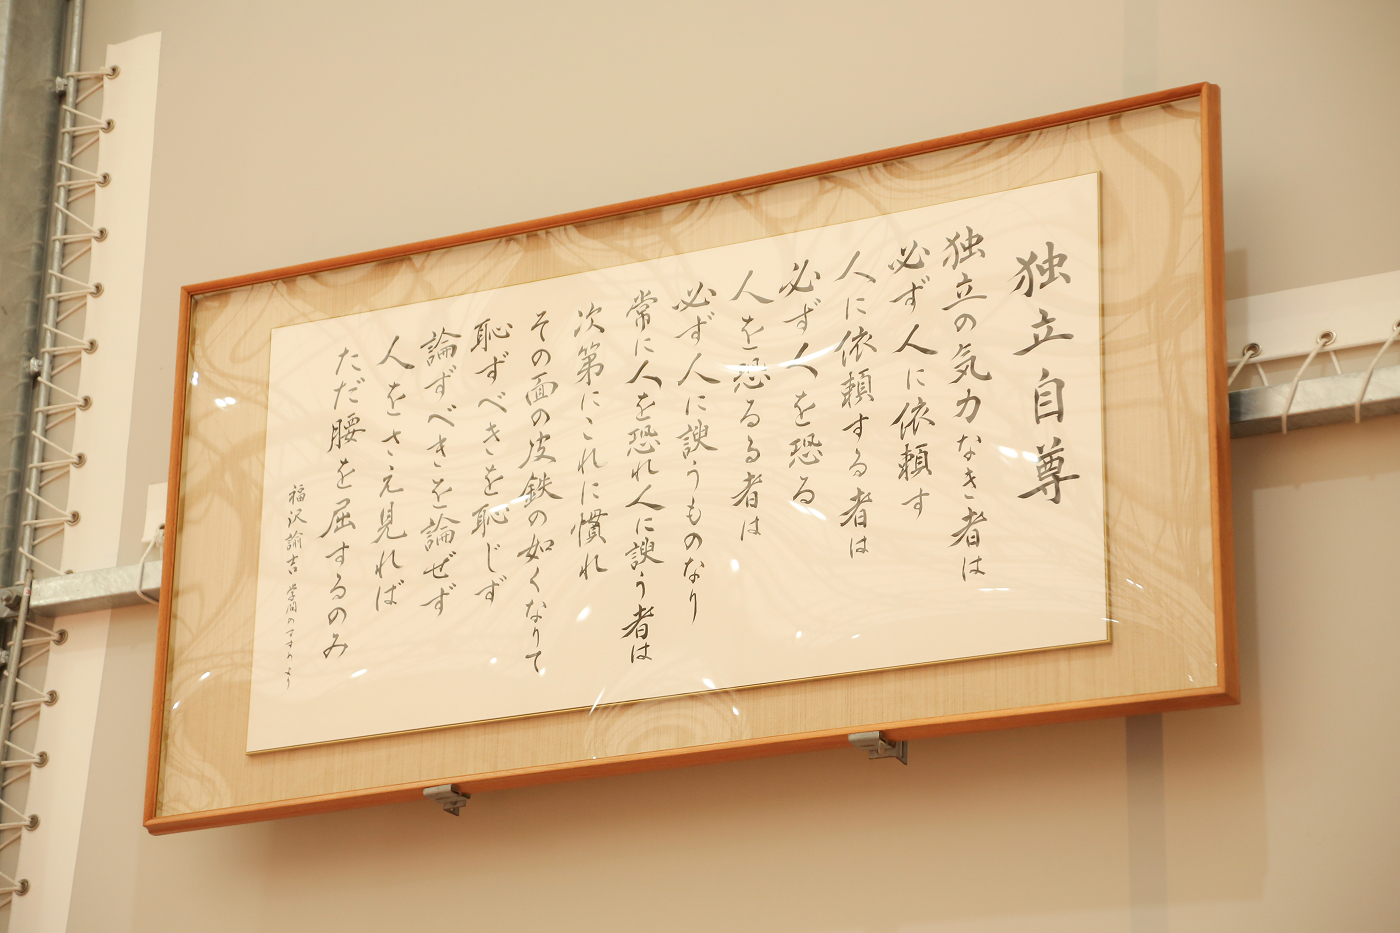 独立自尊
独立の気力なき者は
必ず人に依頼す
人に依頼する者は
必ず人を恐る
人を恐るる者は
必ず人に諛うものなり
常に人を恐れ人に諛う者は
次第にこれに慣れ
その面の皮鉄の如くなりて
恥ずべきを恥じず
論ずべきを論ぜず
人をさえ見れば
ただ腰を屈するのみ
福沢諭吉 学問のすすめより